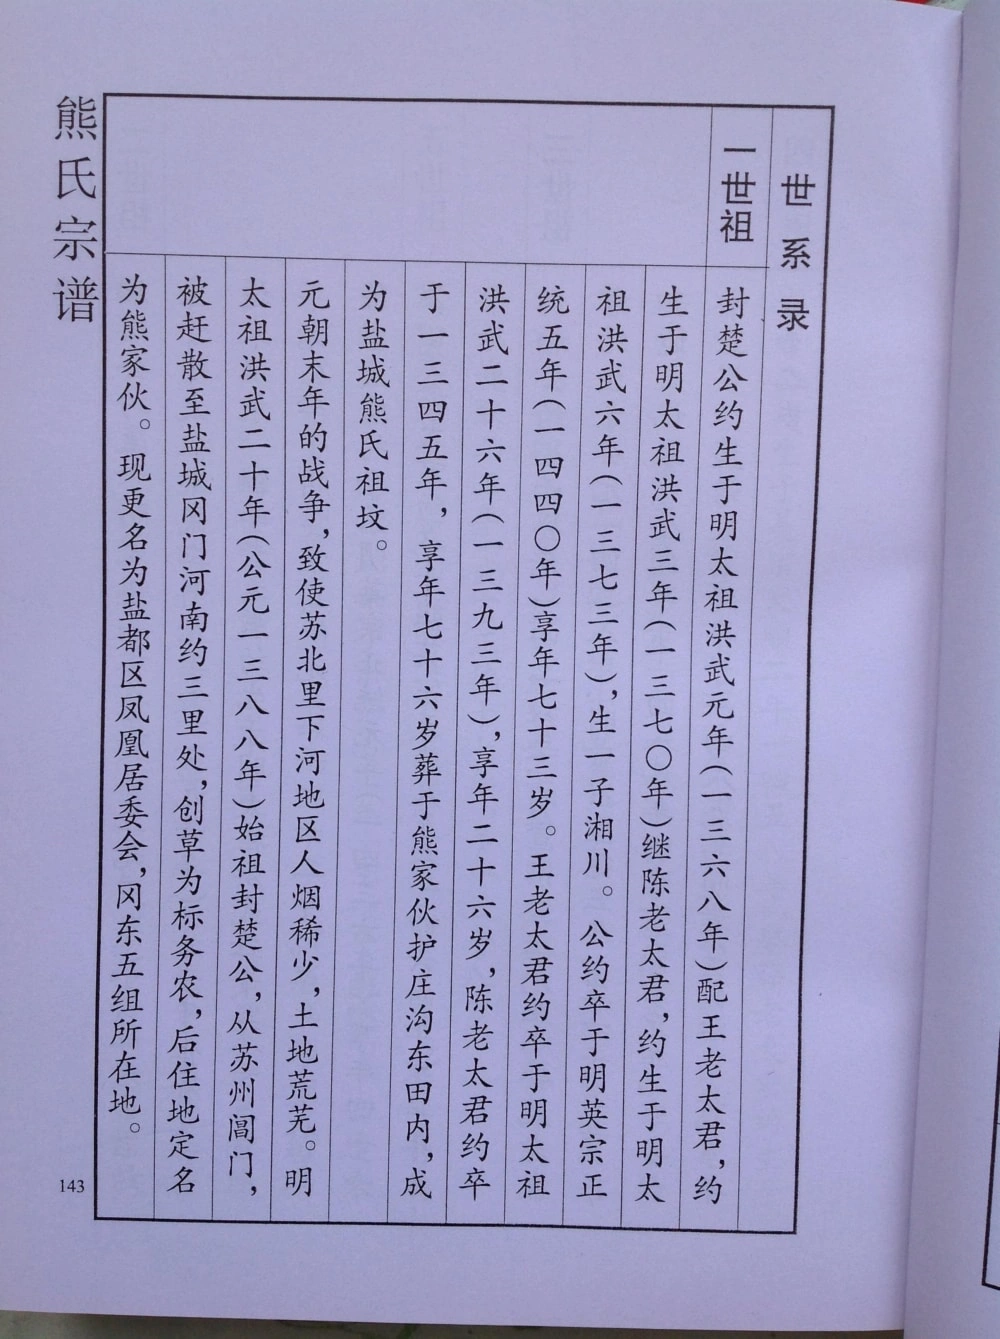 熊氏宗谱
世系录
一世祖
封楚公约生于明太祖洪武元年(一三六八年)配王老太君,约
生于明太祖洪武三年(一三七〇年)继陈老太君,约生于明太
祖洪武六年(一三七三年),生一子湘川。公约卒于明英宗正
统五年(一四四〇年)享年七十三岁。王老太君约卒于明太祖
洪武二十六年(一三九三年),享年二十六岁,陈老太君约卒
于一三四五年,享年七十六岁葬于熊家伙护庄沟东田内,成
为盐城熊氏祖坟。
元朝末年的战争,致使苏北里下河地区人烟稀少,土地荒芜。明
太祖洪武二十年(公元一三八八年)始祖封楚公,从苏州阊门,
被赶散至盐城冈门河南约三里处,创草为标务农,后住地定名
为熊家伙。现更名为盐都区凤凰居委会,冈东五组所在地。
143